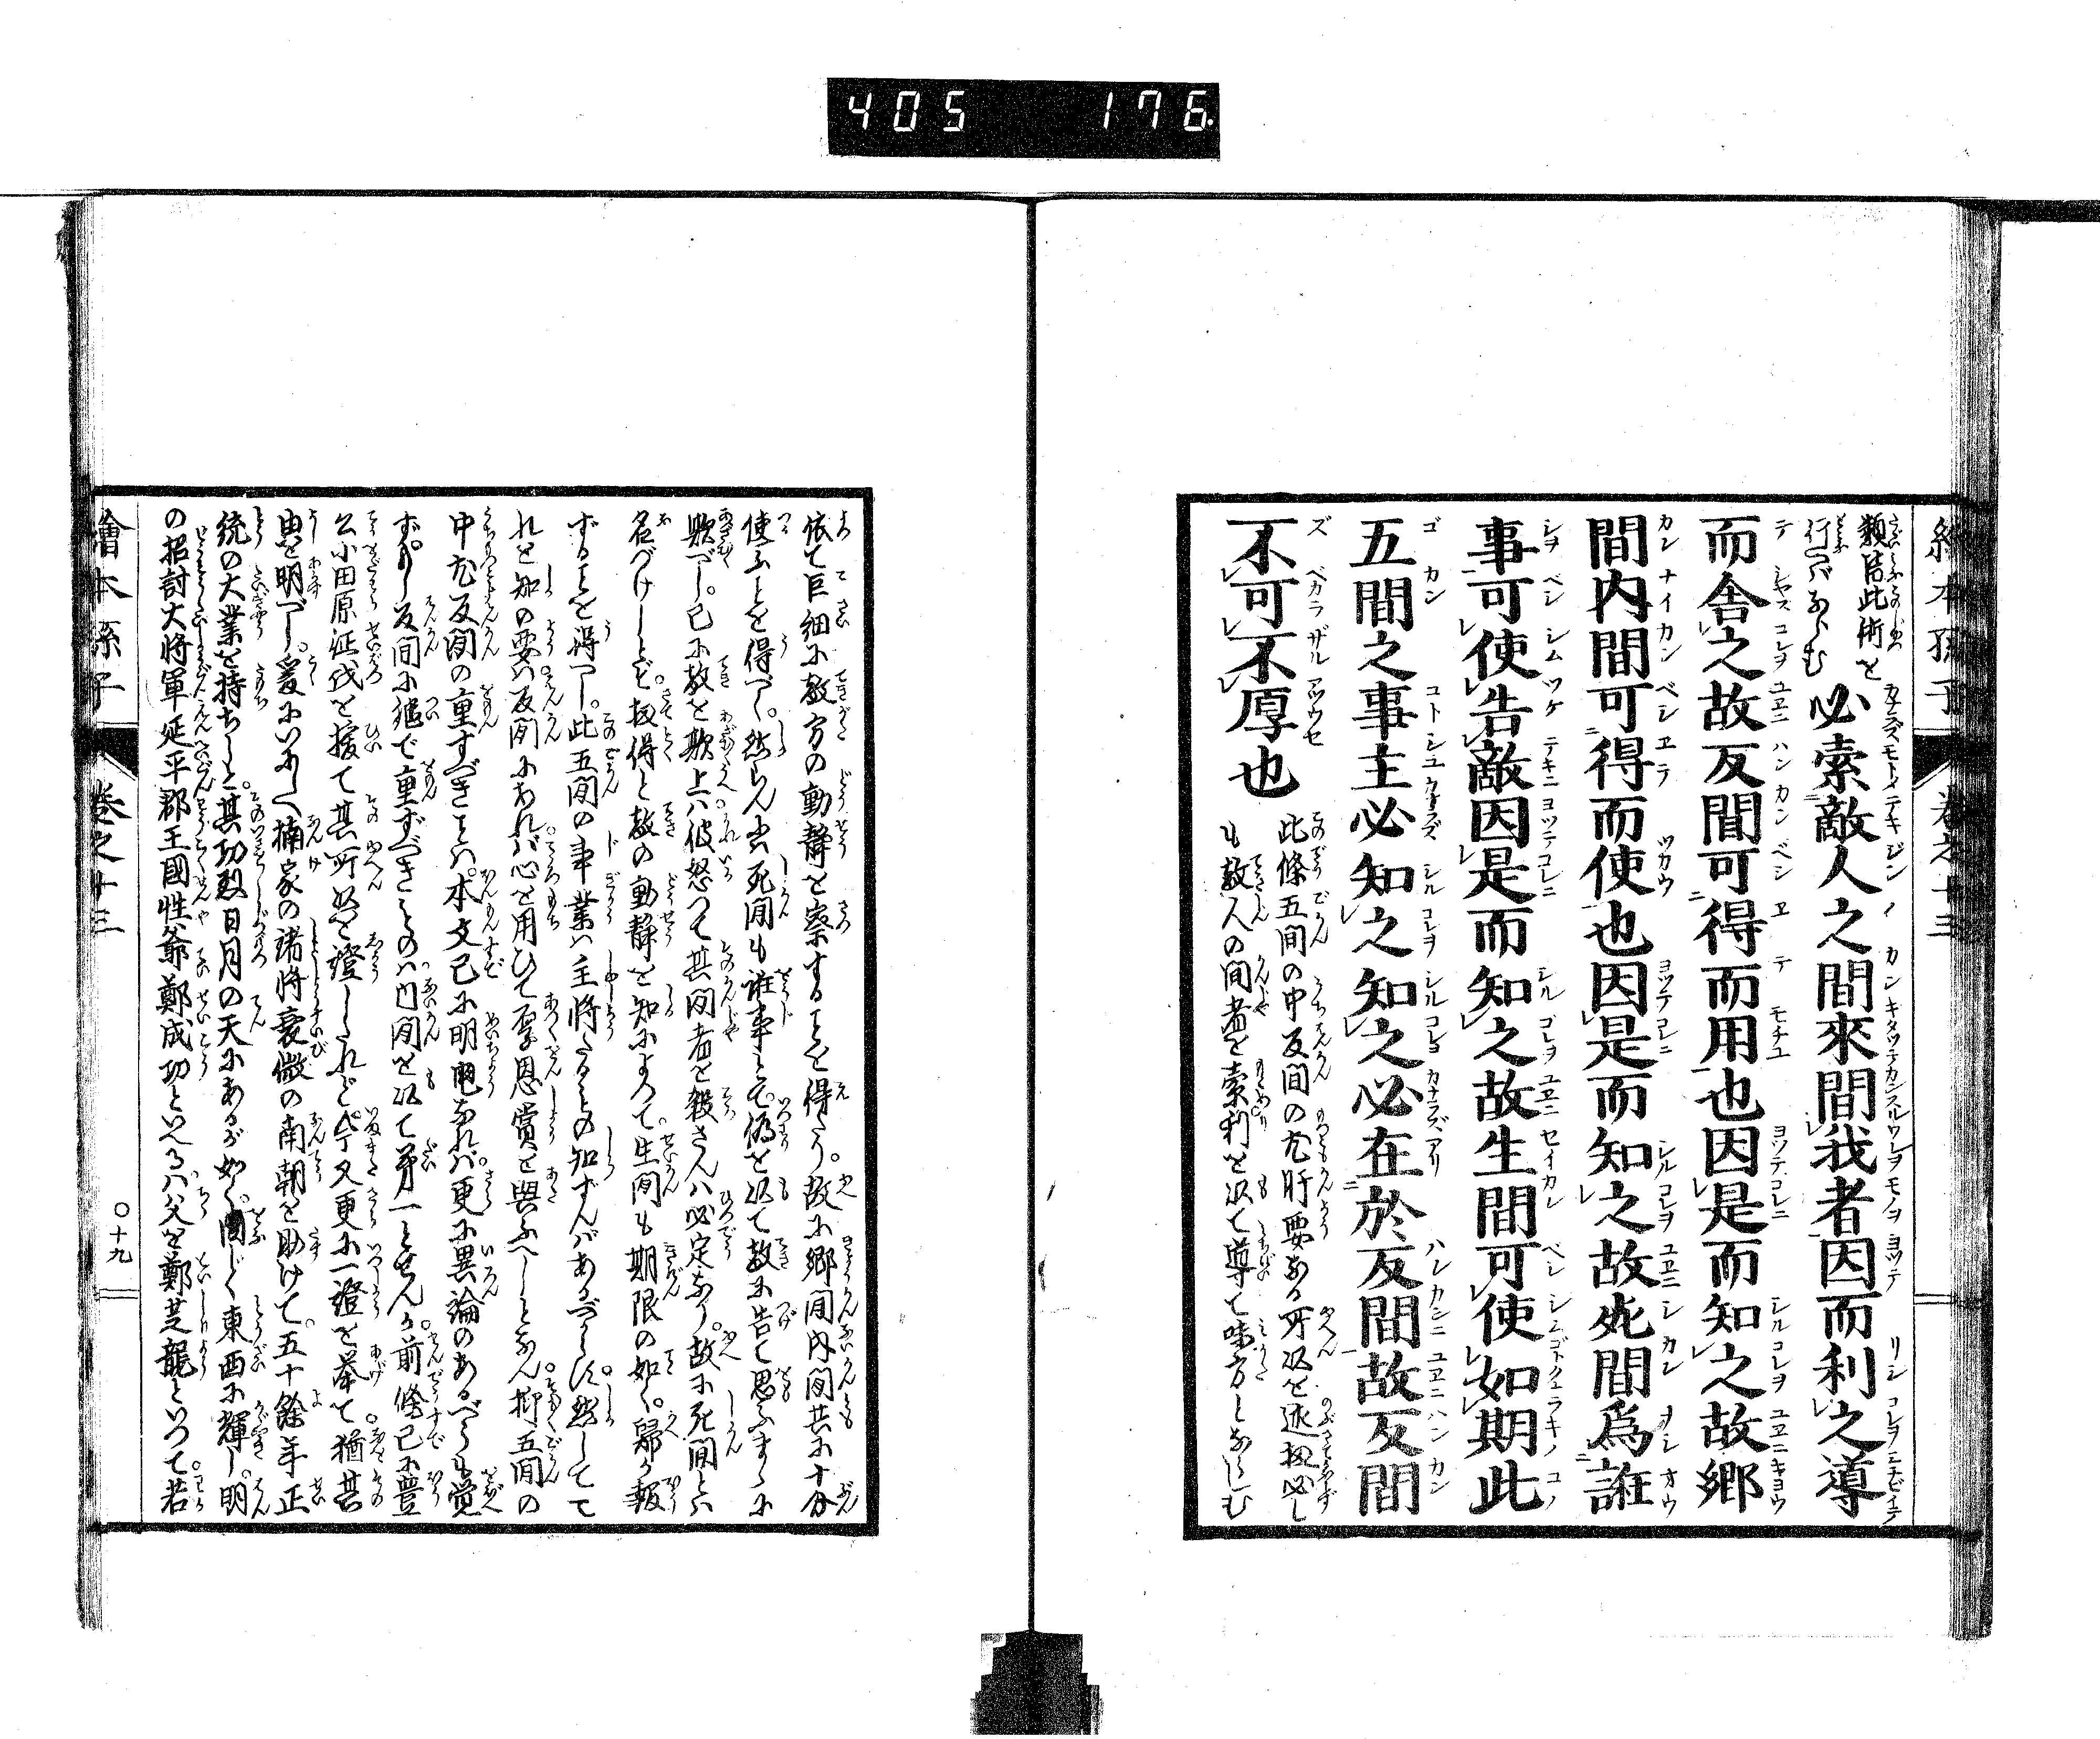 405 176
繪本孫子 卷之十三
類陰此術を
行へバあらむ
必索敵人之間來間我者因而利之導
而舎之故反間可得而用也因是而知之故郷
間内間可得而使也因是而知之故死間爲誑
事可使告敵因是而知之故生間可使如期此
五間之事主必知之知之必在於反間故反間
不可不厚也
此條五間の中反間の尤肝要なる所以を述扨必し
も敵人の間者を索利を以て導て味方となさしむ
依て巨細に敵方の動静を察することを得たり。故に郷間内間共に十分
使ふことを得べく。然らんにハ死間も誑事とて偽を以て敵に告て思ふまゝに
欺べし。已に敵を欺上ハ彼怒つて其間者を殺さんハ必定なり。故に死間とハ
名づけしとぞ。扨得と敵の動静を知によつて。生間も期限の如く歸り報
ずることを得べし。此五間の事業ハ主将たるもの知ずんバあるべからず。然して
れを知の要ハ反間にあれバ心を用ひて厚恩賞を與ふべしとなん抑五間の
中尤反間の重すべきことハ。本文已に明亮なれバ。更に異論のあるべうも覚
ず。もし反間に継で重ずべきものハ内間を以て第一とせんか。前條已に豊
公小田原征伐を援て其所以を證したれど今又更に一證を挙て猶其
由を明べし。爰にいにしへ楠家の諸将衰微の南朝を助けて。五十餘年正
統の大業を持ちしも。其功烈日月の天にあるが如く。同じく東西に輝し。明
の招討大将軍延平郡王國性爺鄭成功といへるハ父を鄭芝龍といつて。若
繪本孫子 卷之十三 〇十九